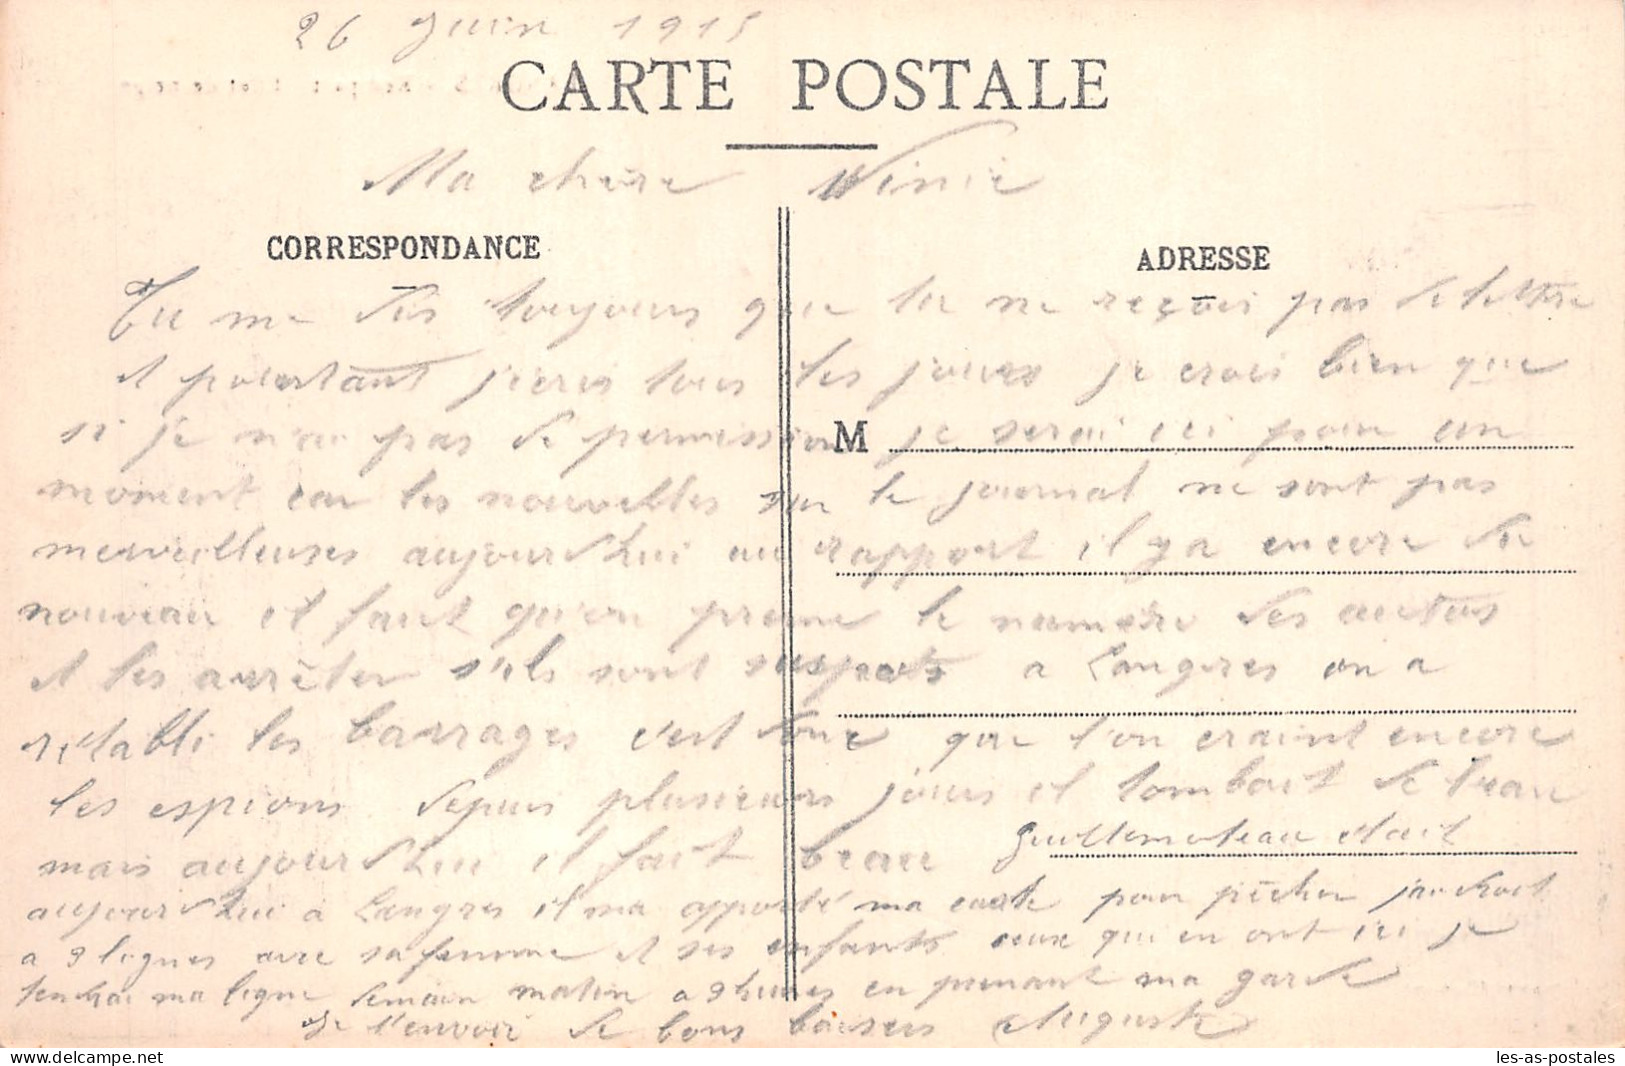 26 Juin 1915
CARTE POSTALE
Ma chère Ninie
CORRESPONDANCE
ADRESSE
Tu me dis toujours que tu ne reçois pas de lettre
et pourtant j'écris tous les jours je crois bien que
si je n'ai pas de permission je serai ici pour un
M
moment car les nouvelles sur le journal ne sont pas
merveilleuses aujourd'hui au rapport il y a encore du
nouveau il faut qu'on prenne le numéro des autos
et les arrêter s'ils sont suspects a Langres on a
rétabli les barrages c'est donc que l'on craint encore
les espions depuis plusieurs jours il tombait de l'eau
mais aujourd'hui il fait beau Guillemoteau était
aujourd'hui à Langres il m'a apporté ma carte pour pêcher j'ai droit
a 3 lignes avec sa femme et ses enfants ceux qui en ont ici je
tendrai ma ligne demain matin a 9 heures en prenant ma garde
Je t'envoi de bons baisers Auguste
les-as-postales